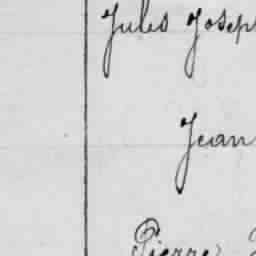 Jules Joseph
Jean
Pierre